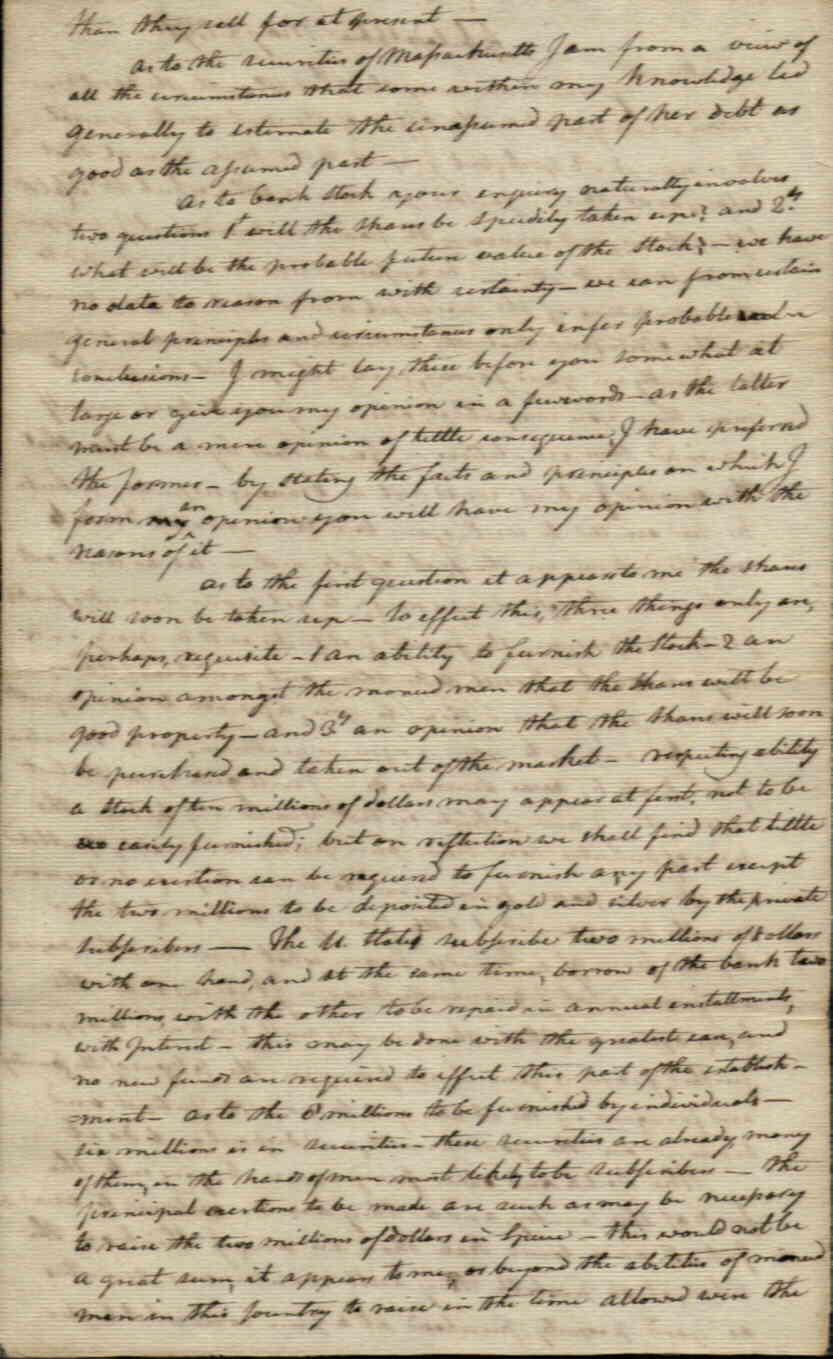 than they sell for at present —
as to the securities of Massachusetts I am from a view of
all the circumstances that come within my knowledge led
generally to estimate the unassumed part of her debt as
good as the assumed part —
as to bank stock your enquiry naturally involves
two questions 1st will the shares be speedily taken up? and 2dy
what will be the probable future value of the stock? — we have
no data to reason from with certainty — we can from certain
general principles and circumstances only infer probable
conclusions — I might lay these before you somewhat at
large or give you my opinion in a few words — as the latter
must be a mere opinion of little consequence, I have preferred
the former — by stating the facts and principles on which I
form an opinion you will have my opinion with the
reasons of it —
as to the first question it appears to me the shares
will soon be taken up — to effect this, three things only are,
perhaps, requisite — 1 an ability to furnish the stock — 2 an
opinion amongst the monied men that the shares will be
good property — and 3dy an opinion that the shares will soon
be purchased and taken out of the market — respecting ability
a stock of ten millions of dollars may appear at first, not to be
easily furnished; but on reflection we shall find that little
or no exertion can be required to furnish any part except
the two millions to be deposited in gold and silver by the private
subscribers — The U. States subscribe two millions of dollars
with one hand, and at the same time, borrow of the bank two
millions, with the other to be repaid in annual installments,
with Interest — this may be done with the greatest ease, and
no new funds are required to effect this part of the establish-
=ment — as to the 8 millions to be furnished by individuals —
six millions is in securities — these securities are already, many
of them, in the hands of men most likely to be subscribers — The
principal exertions to be made are such as may be necessary
to raise the two millions of dollars in Specie — this would not be
a great sum, it appears to me, or beyond the abilities of monied
men in this Country to raise in the time allowed were the